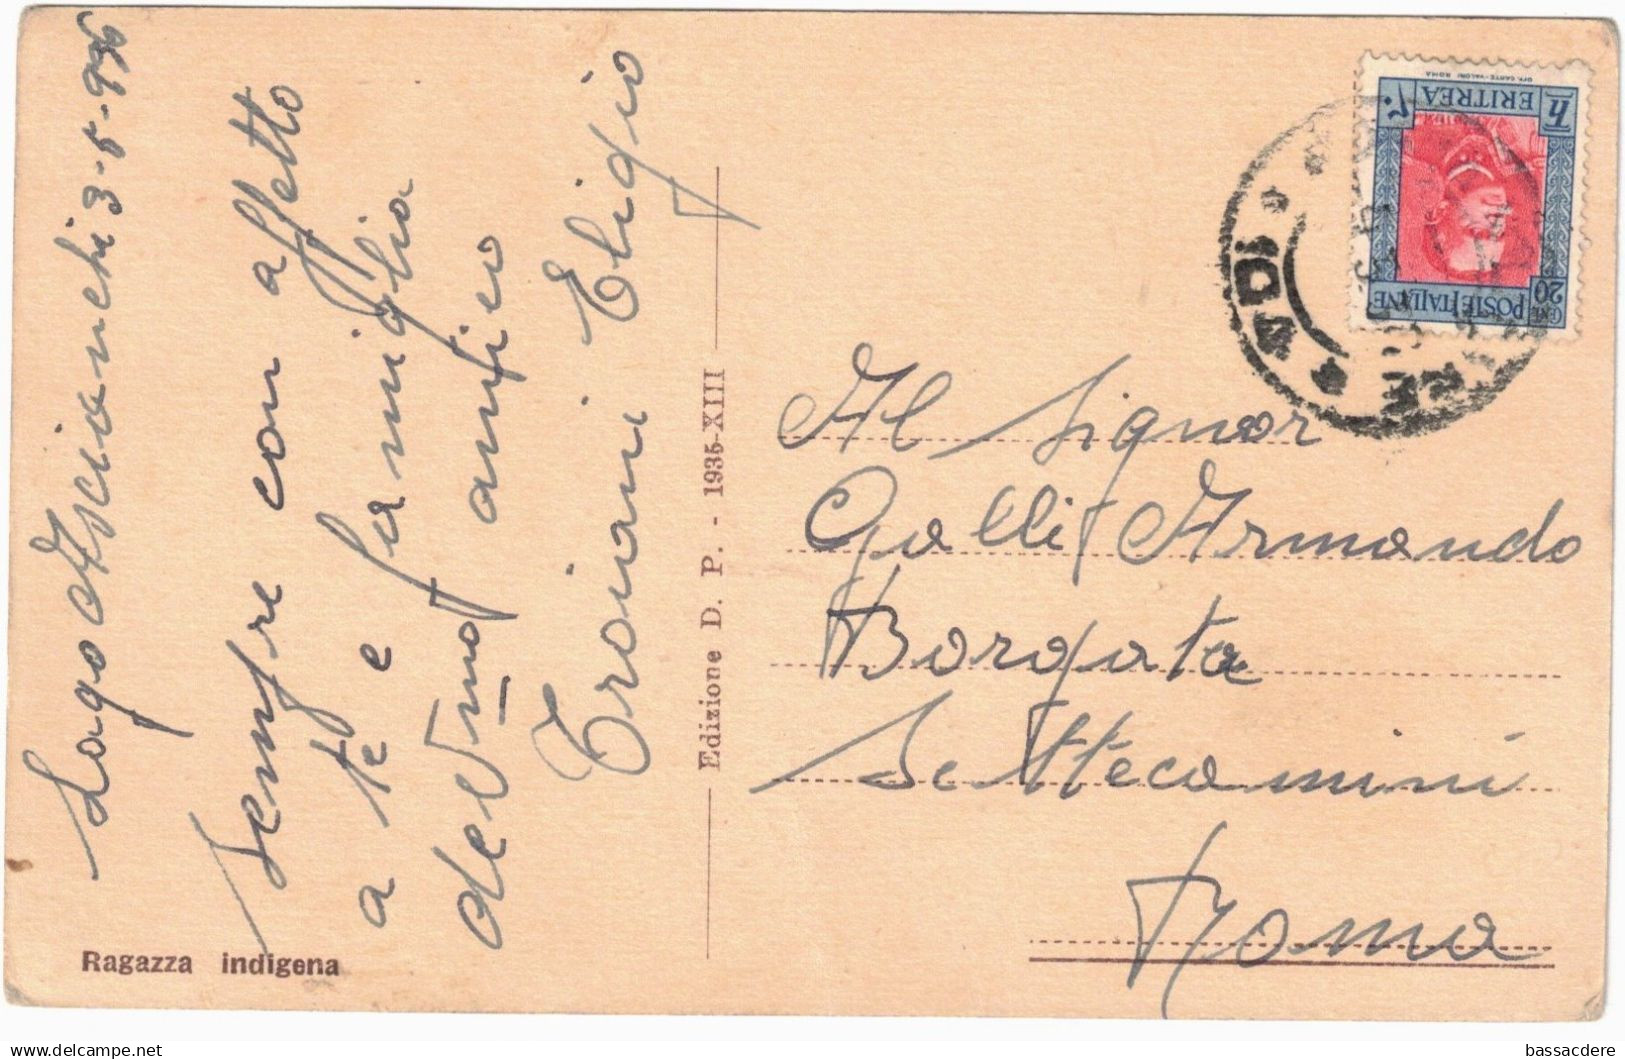 Lago Ascianchi 3-5-936
Sempre con affetto
a te e famiglia
del Vmo amico
Troiani Eligio
Edizione D. P. - 1935-XIII
Ragazza indigena
OFF. CARTE-VALORI ROMA
ERITREA
POSTE ITALIANE
CENT 20
Al Signor
Galli Armando
Borgata
Settecamini
Roma
bassacdere